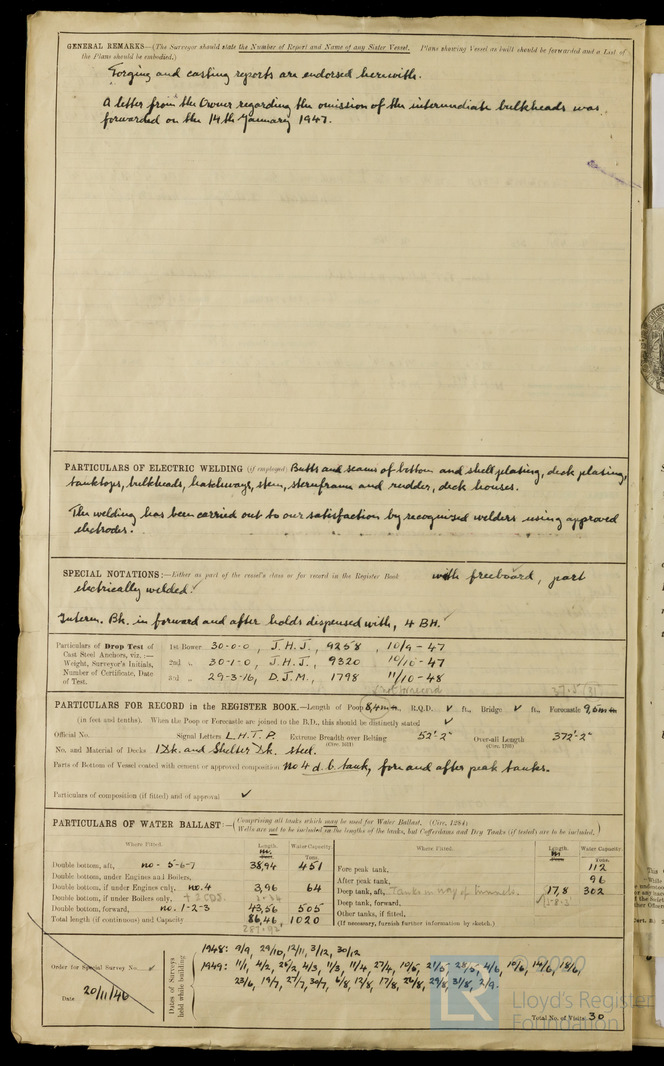 GENERAL REMARKS—(The Surveyor should state the Number of Report and Name of any Sister Vessel. Plans showing Vessel as built should be forwarded and a List of
the Plans should be embodied.)
Forging and casting reports are endorsed herewith.
A letter from the Owner regarding the omission of the intermediate bulkheads was
forwarded on the 14th January 1947.
PARTICULARS OF ELECTRIC WELDING (if employed) Butts and seams of bottom and shell plating, deck plating,
tanktops, bulkheads, hatchways, stem, sternframe and rudder, deck houses.
The welding has been carried out to our satisfaction by recognised welders using approved
electrodes.
SPECIAL NOTATIONS:—Either as part of the vessel's class or for record in the Register Book with freeboard, part
electrically welded.
Interm. Bk. in forward and after holds dispensed with, 4 BH.
Particulars of Drop Test of
Cast Steel Anchors, viz.:—
Weight, Surveyor's Initials,
Number of Certificate, Date
of Test.
1st Bower 30-0-0, J.H.J., 9258, 10/9-47
2nd „ 30-1-0, J.H.J., 9320 10/10-47
3rd „ 29-3-16, D.J.M., 1798 11/10-48
PARTICULARS FOR RECORD in the REGISTER BOOK.—Length of Poop 8,4 m ft., R.Q.D. ✓ ft., Bridge ✓ ft., Forecastle 9,6 m ft.
(in feet and tenths). When the Poop or Forecastle are joined to the B.D., this should be distinctly stated ✓
Official No. Signal Letters L.H.T.P. Extreme Breadth over Belting 52'-2" Over-all Length 372'-2"
(Circ. 1611) (Circ. 1703)
No. and Material of Decks 1 Dk. and Shelter Dk. steel.
Parts of Bottom of Vessel coated with cement or approved composition No 4 d.b. tank, fore and after peak tanks.
Particulars of composition (if fitted) and of approval ✓
PARTICULARS OF WATER BALLAST:—(Comprising all tanks which may be used for Water Ballast. (Circ. 1284)
Wells are not to be included in the lengths of the tanks, but Cofferdams and Dry Tanks (if tested) are to be included.)
Where Fitted. Length. Water Capacity. Where Fitted. Length. Water Capacity.
Tons. Tons.
Double bottom, aft, no - 5-6-7 38,94 451
Double bottom, under Engines and Boilers,
Double bottom, if under Engines only, no. 4 3,96 64
Double bottom, if under Boilers only,
Double bottom, forward, no. 1-2-3 43,56 505
Total length (if continuous) and Capacity 86,46 1020
Fore peak tank, 112
After peak tank, 96
Deep tank, aft, Tanks in way of tunnels. 17,8 302
Deep tank, forward,
Other tanks, if fitted,
(If necessary, furnish further information by sketch.)
Order for Special Survey No. ✓
Date 20/11/46
Dates of Surveys
held while building
1948: 9/9, 29/10, 12/11, 3/12, 30/12
1949: 11/1, 4/2, 26/2, 4/3, 11/3, 11/4, 27/4, 10/5, 21/5, 28/5, 4/6, 10/6, 14/6, 18/6,
23/6, 19/7, 27/7, 30/7, 6/8, 12/8, 17/8, 26/8, 29/8, 31/8, 2/9.
Total No. of Visits 30
© 2020
LR
Lloyd's Register
Foundation